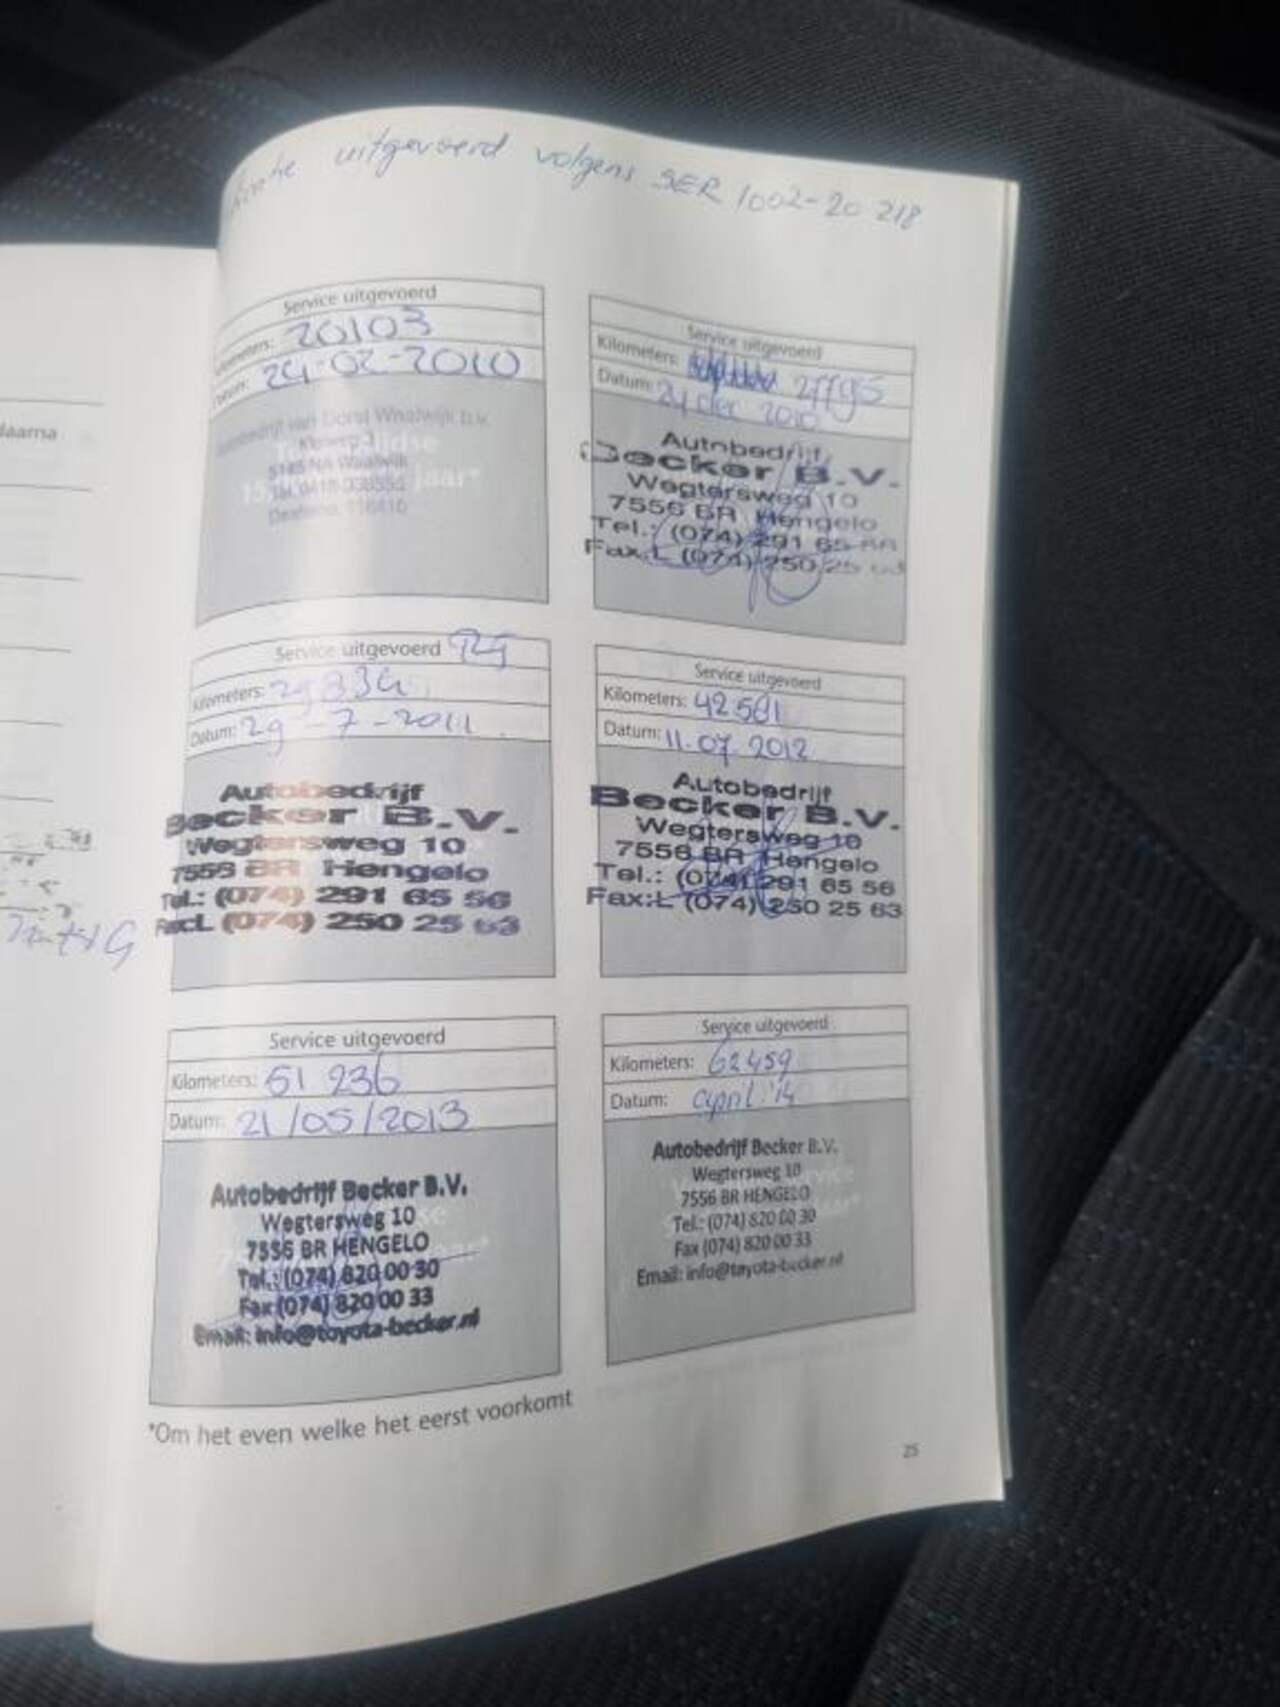 uitgevoerd volgens SER 1002-20 218
Service uitgevoerd
Kilometers: 20103
Datum: 24-02-2010
Autobedrijf van Dorst Waalwijk b.v.
5145 NA Waalwijk
jaar*
Service uitgevoerd
Kilometers: 27795
Datum: 24 dec 2010
Autobedrijf
Becker B.V.
Wegtersweg 10
7556 BR Hengelo
Tel.: (074) 291 65
Fax:L (074) 250 25 63
Service uitgevoerd
Kilometers:
Datum: 29-7-2011
Autobedrijf
Becker B.V.
Wegtersweg 10
7556 BR Hengelo
Tel.: (074) 291 65 56
Fax:L (074) 250 25 63
Service uitgevoerd
Kilometers: 42581
Datum: 11.07.2012
Autobedrijf
Becker B.V.
Wegtersweg 10
7556 BR Hengelo
Tel.: (074) 291 65 56
Fax:L (074) 250 25 63
Service uitgevoerd
Kilometers: 51 236
Datum: 21/05/2013
Autobedrijf Becker B.V.
Wegtersweg 10
7556 BR HENGELO
Tel.: (074) 820 00 30
Fax (074) 820 00 33
Email: info@toyota-becker.nl
Service uitgevoerd
Kilometers: 62459
Datum: april '14
Autobedrijf Becker B.V.
Wegtersweg 10
7556 BR HENGELO
Tel.: (074) 820 00 30
Fax (074) 820 00 33
Email: info@toyota-becker.nl
*Om het even welke het eerst voorkomt
25